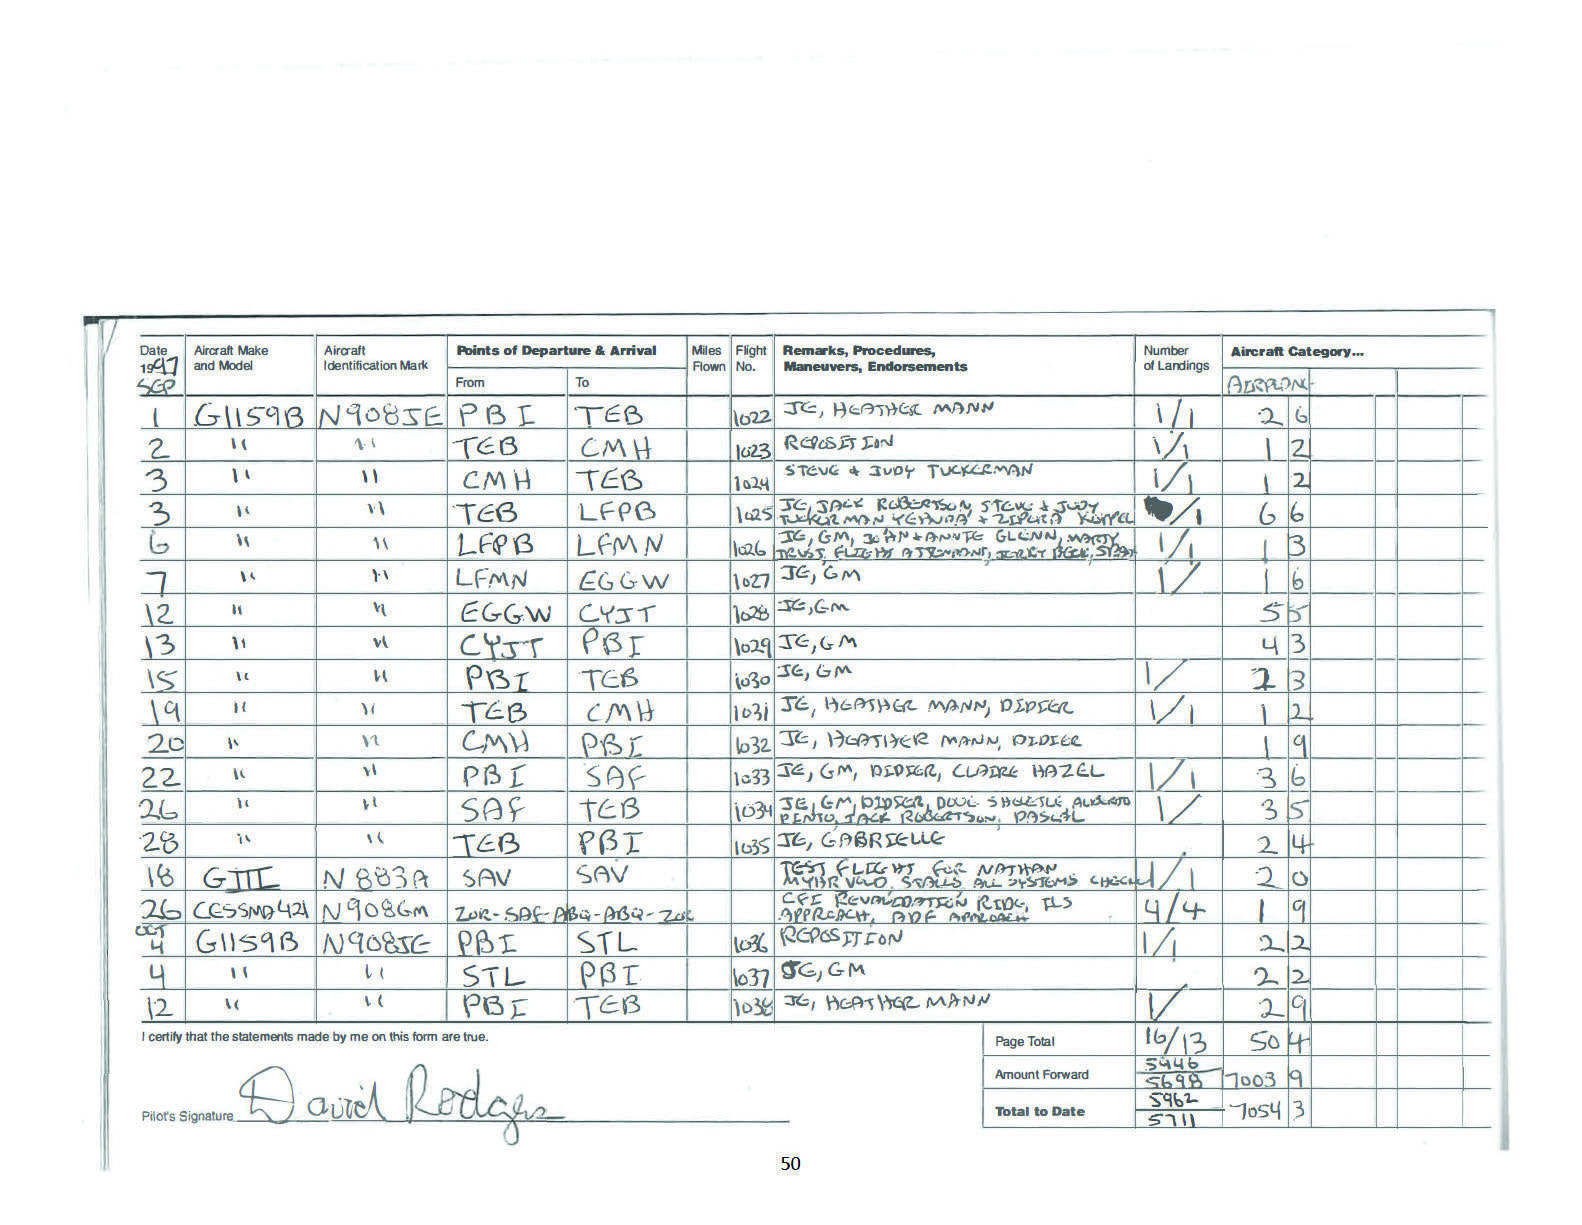 Date Aircraft Make Aircraft Points of Departure & Arrival Miles Flight Remarks, Procedures, Number Aircraft Category...
1997 and Model Identification Mark Flown No. Maneuvers, Endorsements of Landings
SEP From To AIRPLANE
1 G1159B N908JE PBI TEB 1022 JE, HEATHER MANN 1/1 2 6
2 " " TEB CMH 1023 REPOSITION 1/1 1 2
3 " " CMH TEB 1024 STEVE & JUDY TUCKERMAN 1/1 1 2
3 " " TEB LFPB 1025 JE, JACK ROBERTSON, STEVE & JUDY /1 6 6
TUCKERMAN YEHUDA + ZIPORA KOPPEL
6 " " LFPB LFMN 1026 JE, GM, JOHN + ANNIE GLENN, MARTY 1/1 1 3
TRUST, FLIGHT ATTENDANT,
7 " " LFMN EGGW 1027 JE, GM 1/ 1 6
12 " " EGGW CYJT 1028 JE, GM 5 5
13 " " CYJT PBI 1029 JE, GM 4 3
15 " " PBI TEB 1030 JE, GM 1/ 2 3
19 " " TEB CMH 1031 JE, HEATHER MANN, DIDIER 1/1 1 2
20 " " CMH PBI 1032 JE, HEATHER MANN, DIDIER 1 9
22 " " PBI SAF 1033 JE, GM, DIDIER, CLAIRE HAZEL 1/1 3 6
26 " " SAF TEB 1034 JE, GM, DIDIER, DOUG ALBERTO 1/ 3 5
PINTO, JACK ROBERTSON, PASCAL
28 " " TEB PBI 1035 JE, GABRIELLE 2 4
18 GIII N883A SAV SAV TEST FLIGHT FOR NATHAN 1/1 2 0
MYHRVOLD. STALLS, ALL SYSTEMS CHECK
26 CESSNA 421 N908GM ZOR-SAF-ABQ-ABQ-ZOR CFI REVALIDATION RIDE, ILS 4/4 1 9
APPROACH, ADF APPROACH
OCT
4 G1159B N908JE PBI STL 1036 REPOSITION 1/1 2 2
4 " " STL PBI 1037 JE, GM 2 2
12 " " PBI TEB 1038 JE, HEATHER MANN 1/ 2 9
I certify that the statements made by me on this form are true. Page Total 16/13 50 4
Amount Forward 5946 5698 7003 9
Pilot's Signature David Rodgers Total to Date 5962 5711 7054 3
50